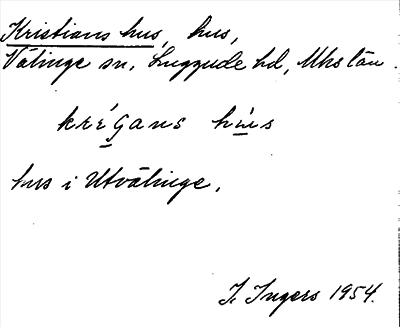 Kristians hus, hus,
Välinge sn, Luggude hd, Mhs län.
krḛ́gans hṵ́s
hus i Utvälinge.
I. Ingers 1954.